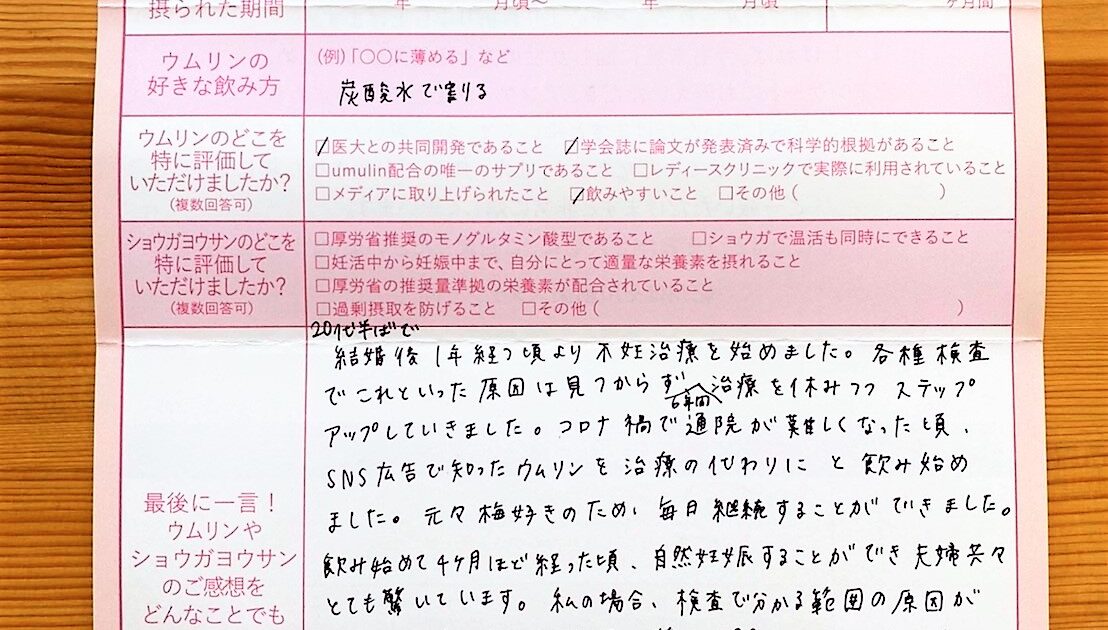 摂られた期間
年 月頃〜 年 月頃
ヶ月間
ウムリンの
好きな飲み方
(例)「〇〇に薄める」など
炭酸水で割る
ウムリンのどこを
特に評価して
いただけましたか?
(複数回答可)
☑医大との共同開発であること ☑学会誌に論文が発表済みで科学的根拠があること
□umulin配合の唯一のサプリであること □レディースクリニックで実際に利用されていること
□メディアに取り上げられたこと ☑飲みやすいこと □その他( )
ショウガヨウサンのどこを
特に評価して
いただけましたか?
(複数回答可)
□厚労省推奨のモノグルタミン酸型であること □ショウガで温活も同時にできること
□妊活中から妊娠中まで、自分にとって適量な栄養素を摂れること
□厚労省の推奨量準拠の栄養素が配合されていること
□過剰摂取を防げること □その他( )
最後に一言!
ウムリンや
ショウガヨウサン
のご感想を
どんなことでも
20代半ばで
結婚後1年経つ頃より不妊治療を始めました。各種検査
でこれといった原因は見つからず 6年間 治療を休みつつステップ
アップしていきました。コロナ禍で通院が難しくなった頃、
SNS広告で知ったウムリンを治療の代わりにと飲み始め
ました。元々梅好きのため、毎日継続することができました。
飲み始めて4ヶ月ほど経った頃、自然妊娠することができ夫婦共々
とても驚いています。私の場合、検査で分かる範囲の原因が